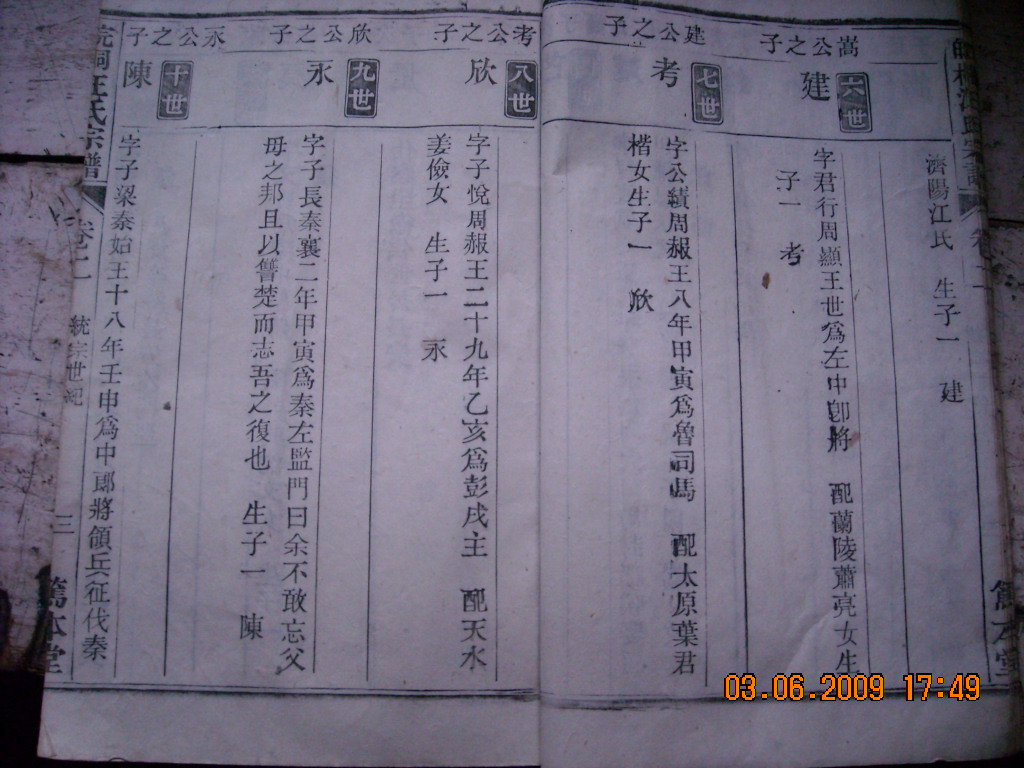 濟陽江氏　生子一　建
嵩公之子
六世
建
字君行周顯王世爲左中郎將　配蘭陵蕭亮女生
子一　考
建公之子
七世
考
字公績周赧王八年甲寅爲魯司馬　配太原葉君
楷女生子一　欣
考公之子
八世
欣
字子悅周赧王二十九年乙亥爲彭戌主　配天水
姜儉女　生子一　永
欣公之子
九世
永
字子長秦襄二年甲寅爲秦左監門曰余不敢忘父
母之邦且以讐楚而志吾之復也　生子一　陳
永公之子
十世
陳
字子梁秦始王十八年壬申爲中郎將領兵征伐秦
汪氏宗譜
卷二
統宗世紀
三
篤本堂
03.06.2009 17:49